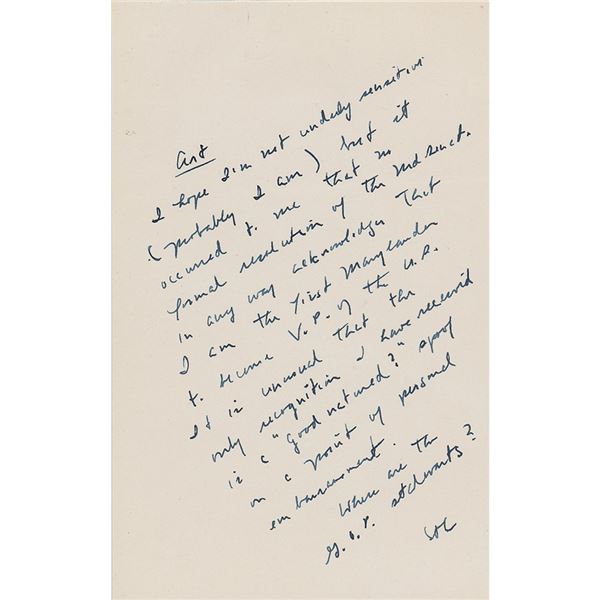 Art
I hope I'm not unduly sensitive
(probably I am) but it
occurred to me that no
formal resolution of the Md Senate
in any way acknowledges that
I am the first Marylander
to become V.P. of the U.S.
It is unusual that the
only recognition I have received
is a "good natured?" spoof
on a point of personal
embarrassment.
Where are the
G.O.P. stalwarts?